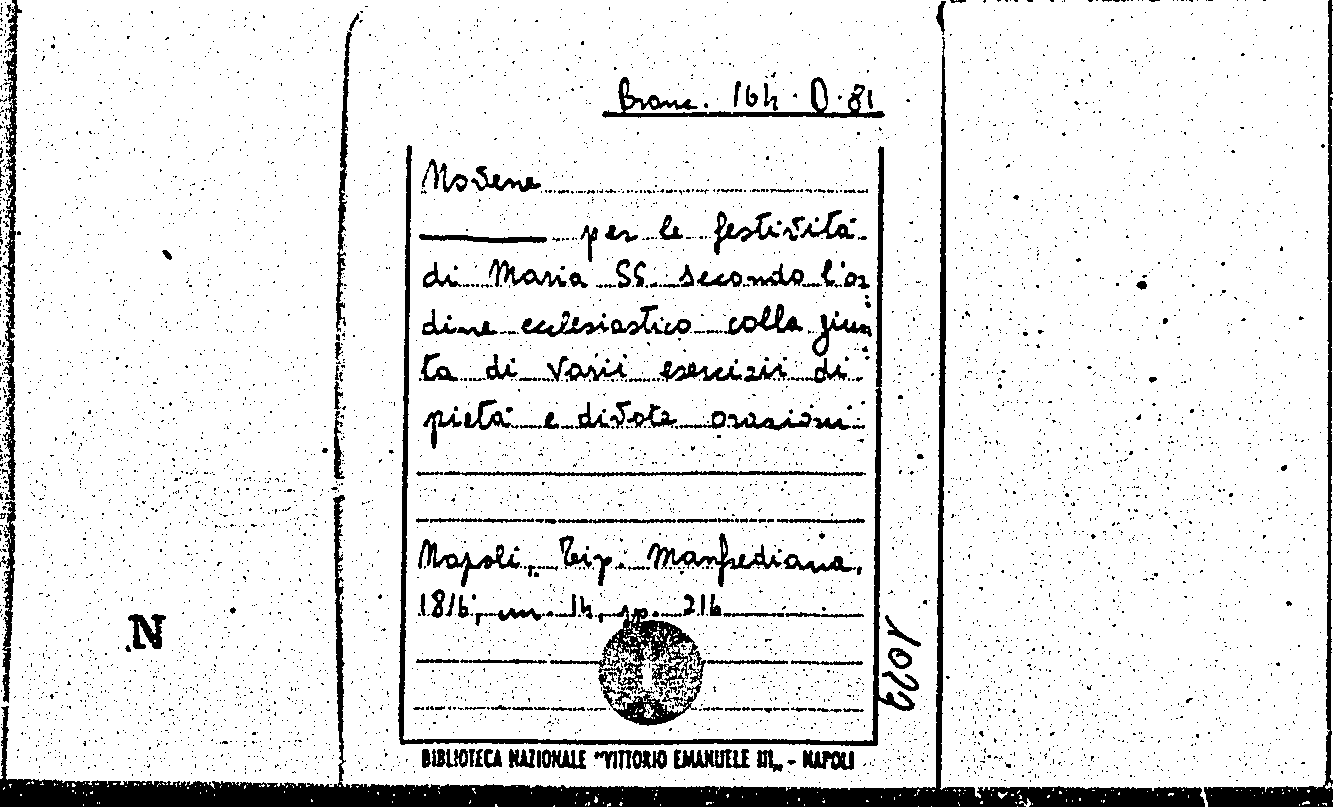 Branc. 164 · D · 81
Novene
per le festività
di Maria SS. secondo l'or
dine ecclesiastico colla giun
ta di varii esercizii di
pietà e divote orazioni
Napoli, Tip. Manfrediana,
1816, in 14, pp. 216
N
BIBLIOTECA NAZIONALE "VITTORIO EMANUELE III„ - NAPOLI